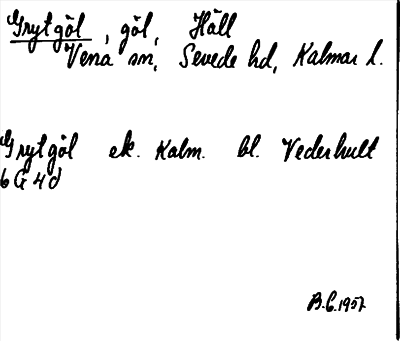 Grytgöl, göl, Häll
Vena sn, Sevede hd, Kalmar l.
Grytgöl ek. Kalm. bl. Vederhult
6 G 4 d
B.C. 1957